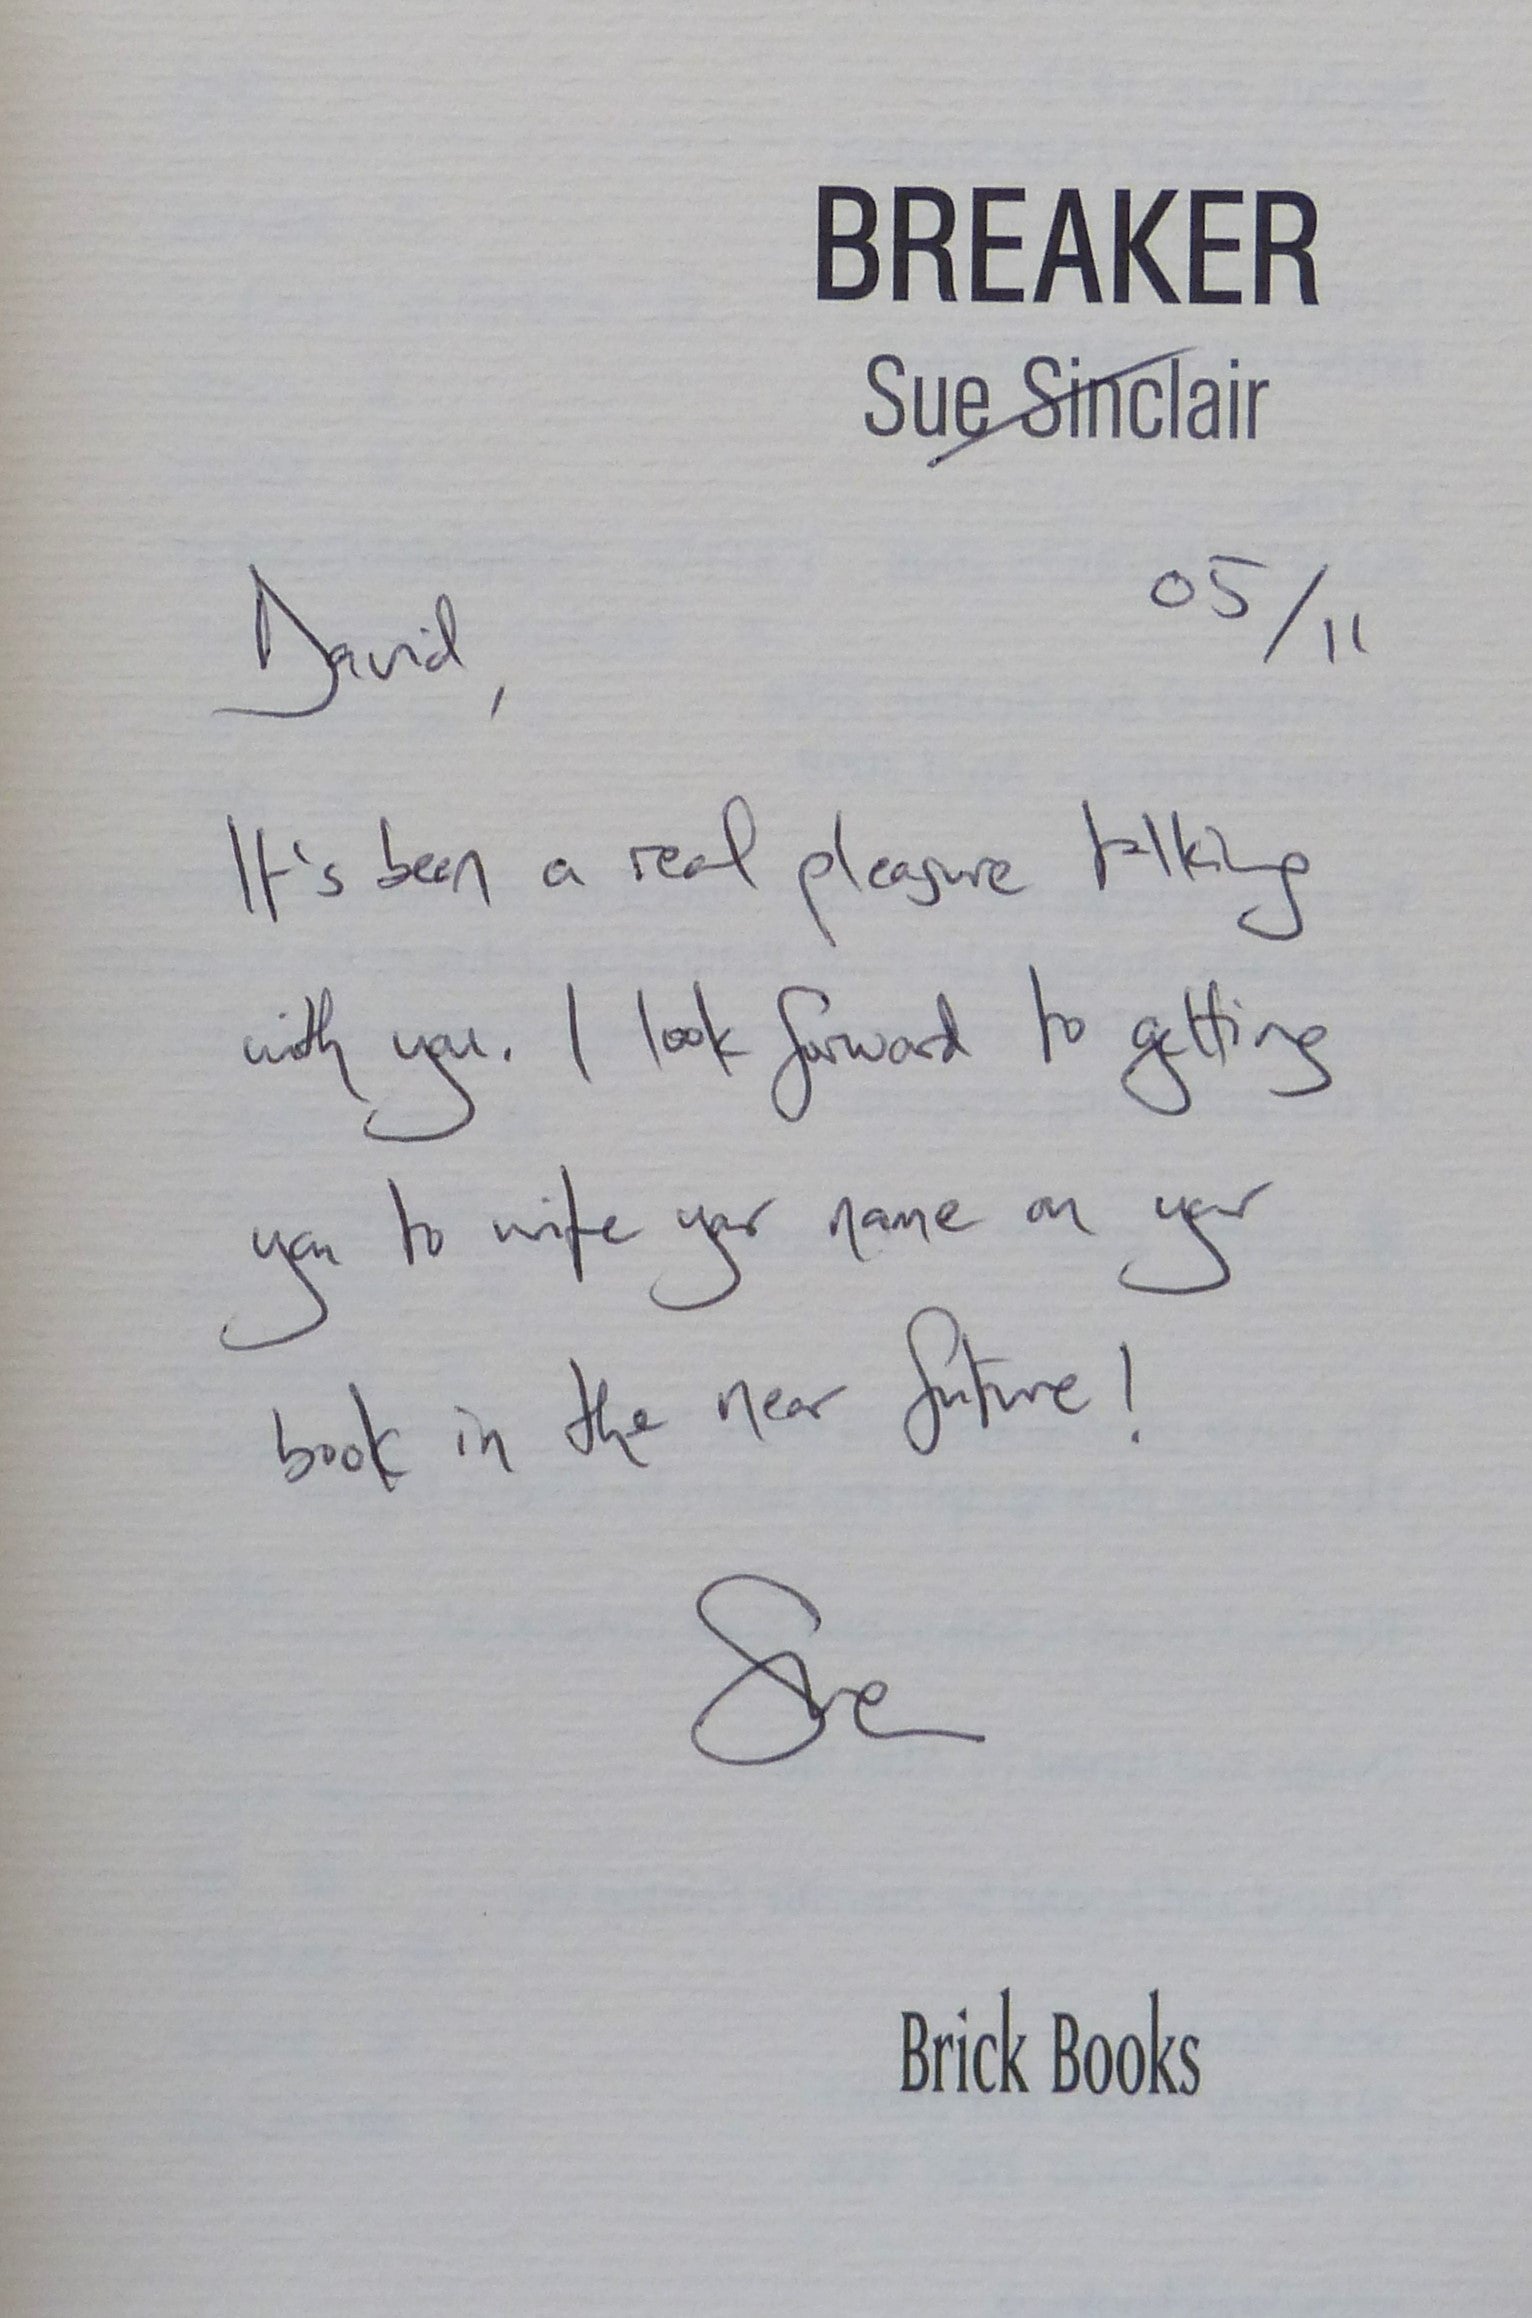 BREAKER
Sue Sinclair
05/11
David,
It's been a real pleasure talking
with you. I look forward to getting
you to write your name on your
book in the near future!
Sue
Brick Books